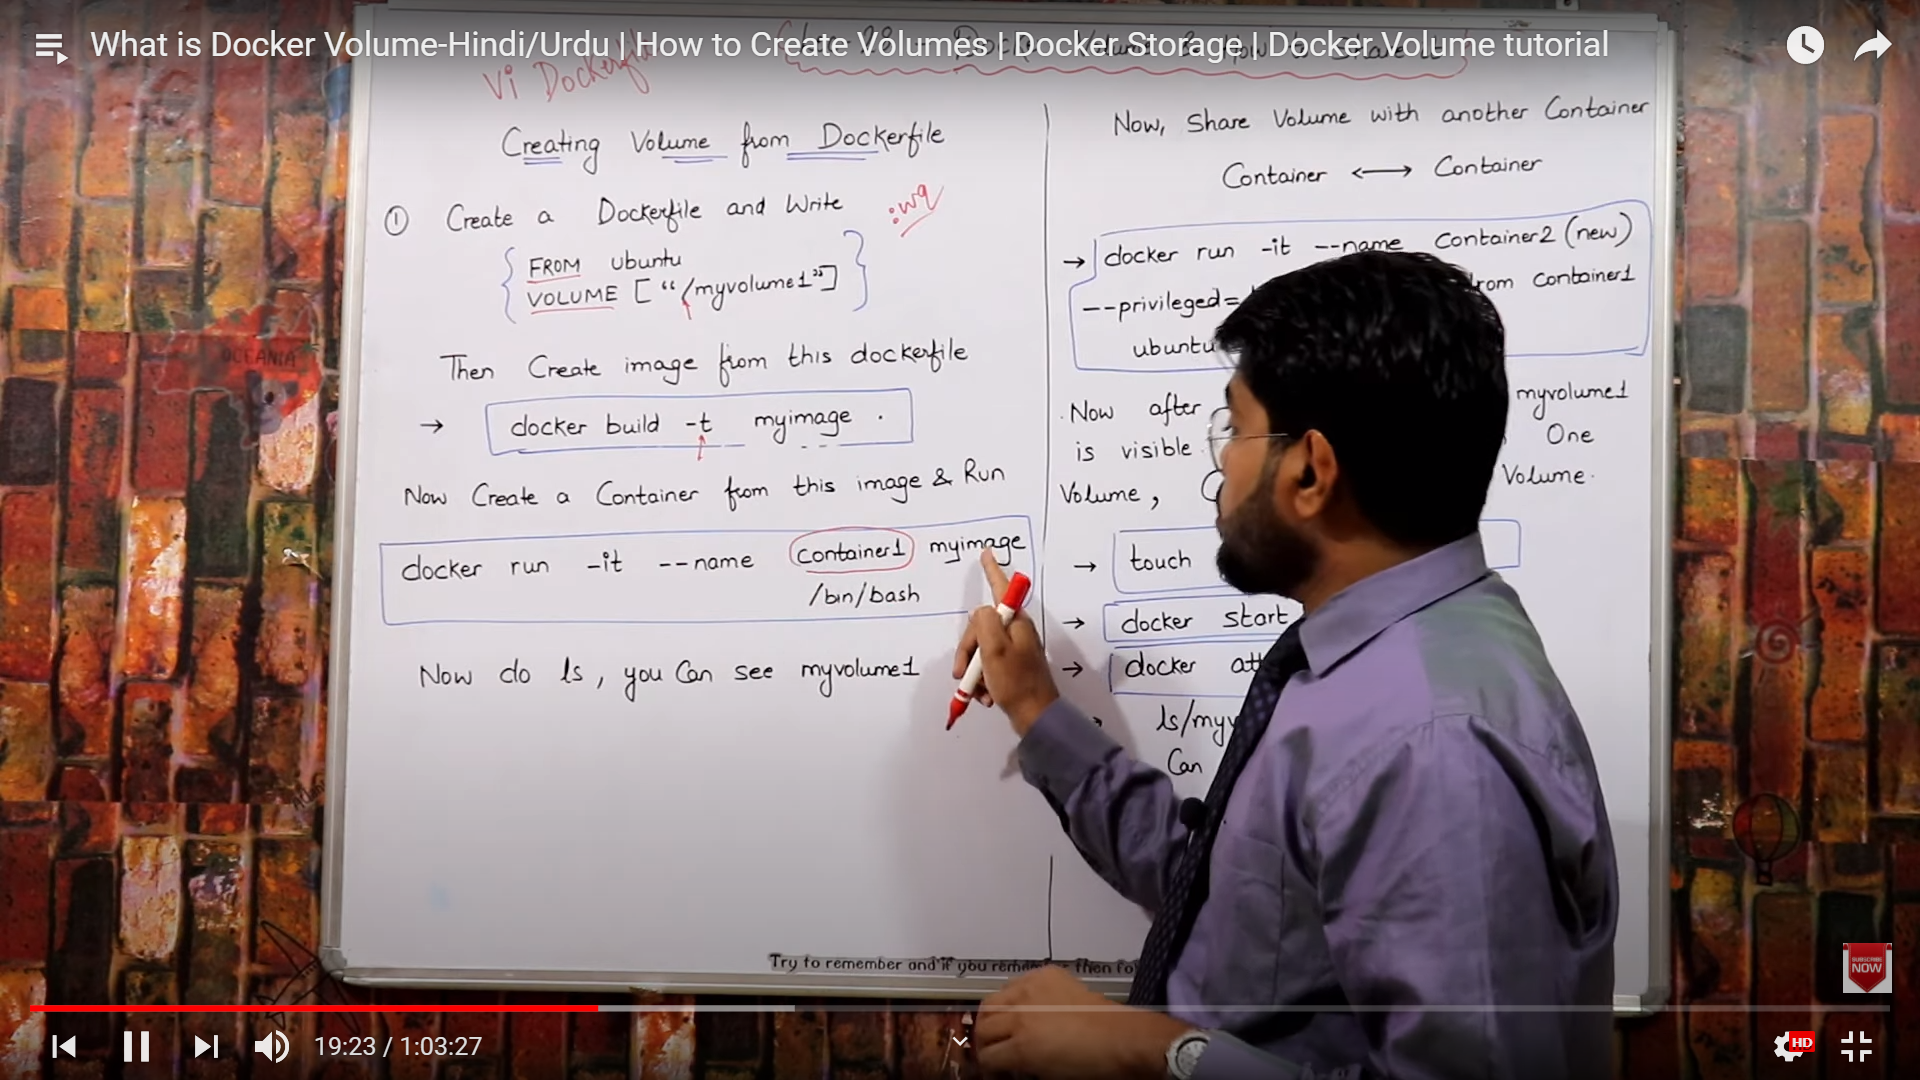 What is Docker Volume-Hindi/Urdu | How to Create Volumes | Docker Storage | Docker Volume tutorial
Vi Dockerfile
Creating Volume from Dockerfile
① Create a Dockerfile and Write :wq
FROM ubuntu
VOLUME ["/myvolume1"]
Then Create image from this dockerfile
→ docker build -t myimage .
Now Create a Container from this image & Run
docker run -it --name container1 myimage
/bin/bash
Now do ls, you Can see myvolume1
Now, Share Volume with another Container
Container ⟷ Container
→ docker run -it --name Container2 (new)
--privileged= from container1
ubuntu
Now after myvolume1
is visible One
Volume, Volume.
→ touch
→ docker start
→ docker
ls/
Can
Try to remember and if you then
OCEANIA
SUBSCRIBE
NOW
19:23 / 1:03:27
HD